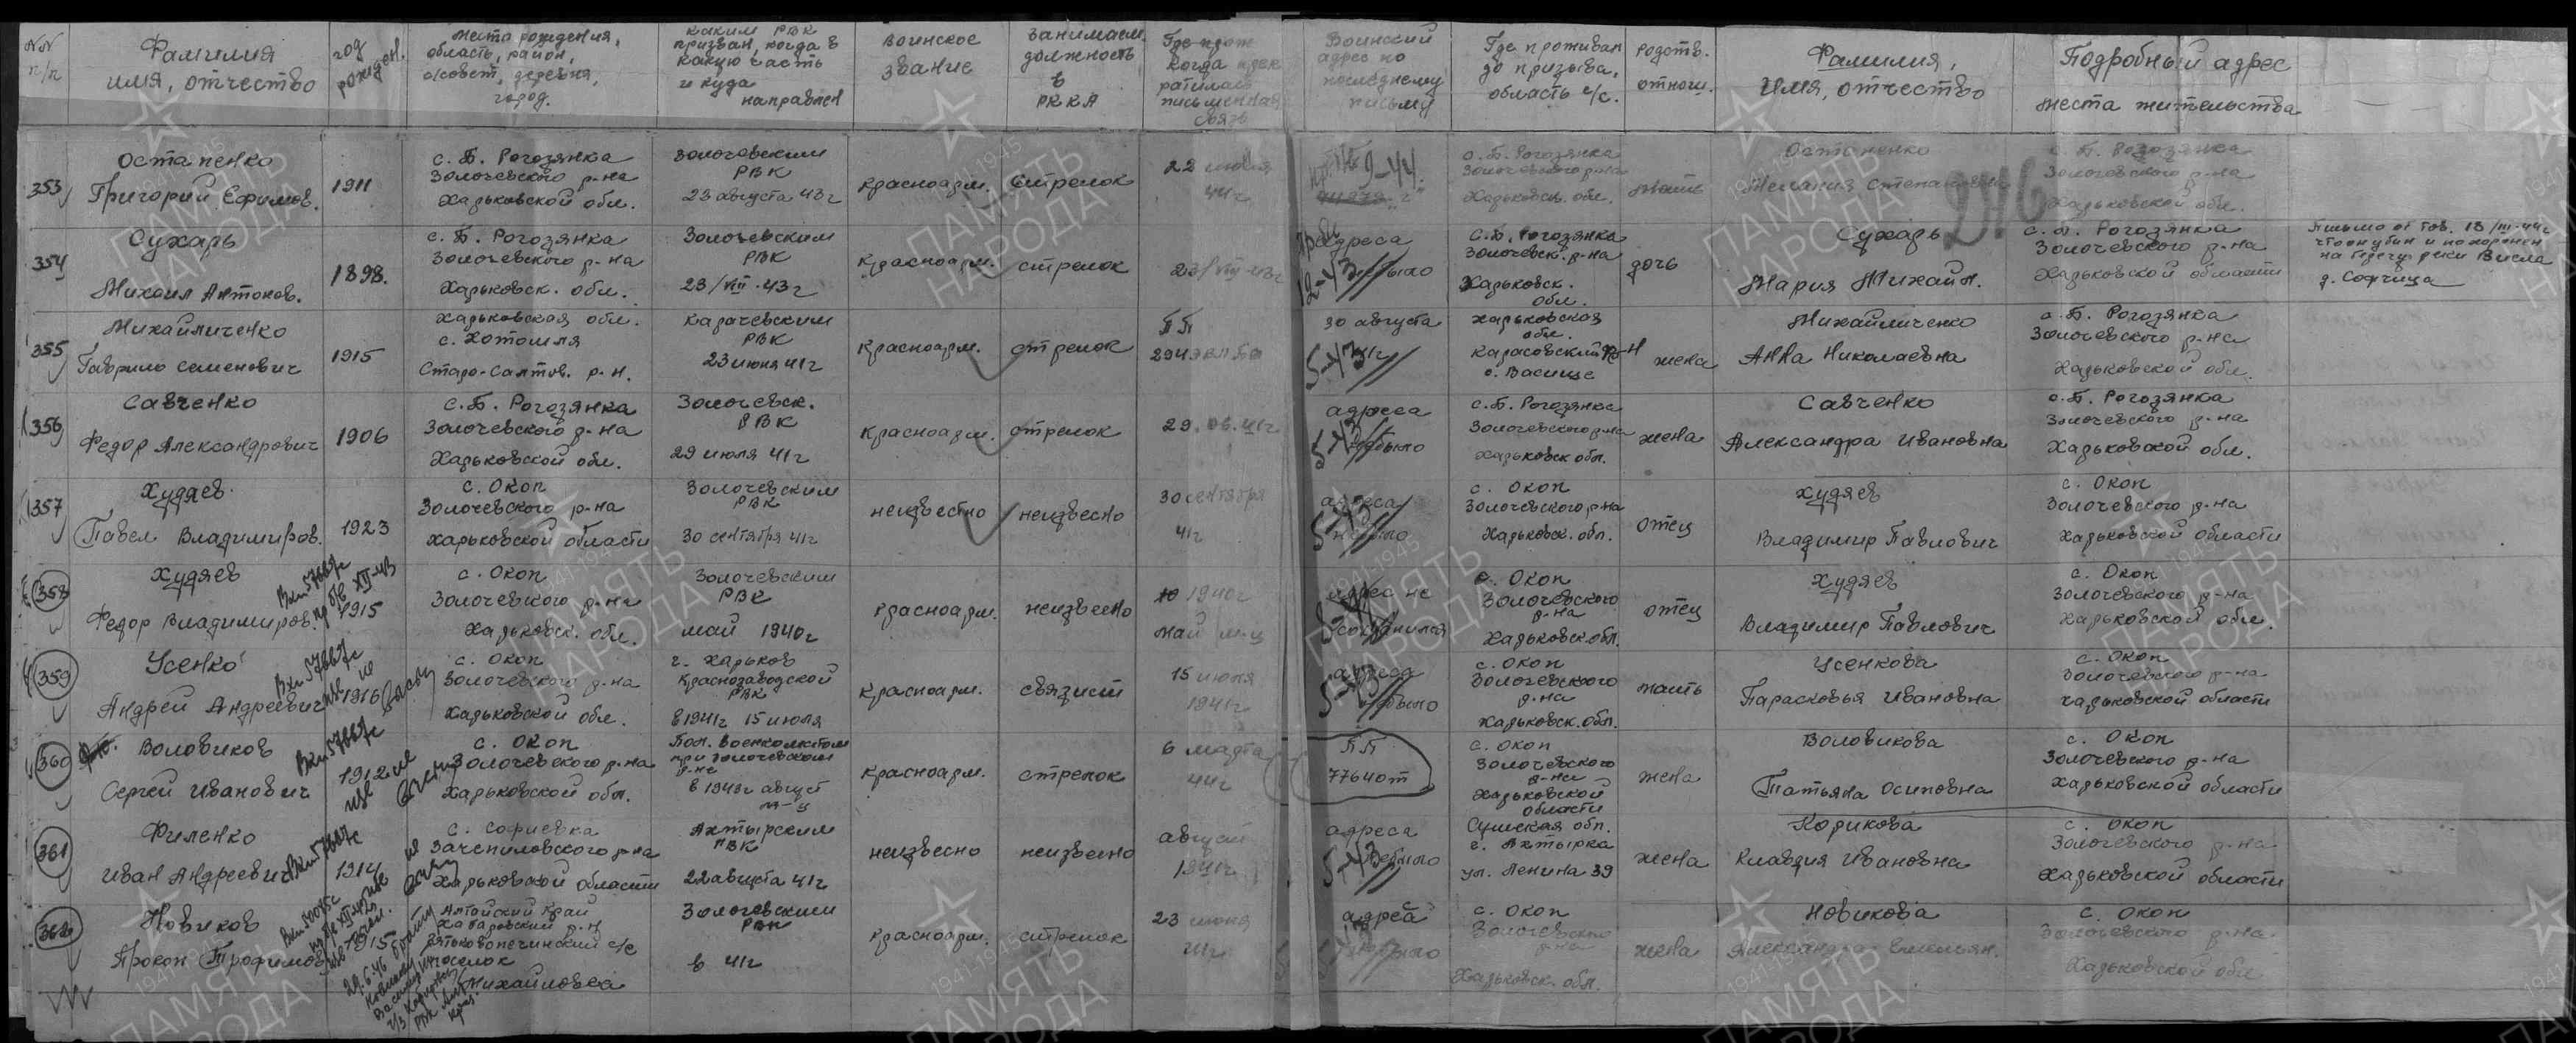 NN п/п
Фамилия имя, отчество
год рожден.
места рождения, область, район, с/совет, деревня, город.
каким РВК призван, когда в какую часть и куда направлен
Воинское звание
Занимаем. должность в РККА
Где и когда прекратилась письменная связь
Воинский адрес по последнему письму
Где проживал до призыва, область с/с.
Родств. отнош.
Фамилия, Имя, отчество
Подробный адрес места жительства
353
Остапенко Григорий Ефимов.
1911
с. Б. Рогозянка Золочевского р-на Харьковской обл.
Золочевским РВК 23 августа 43г
Красноарм.
Стрелок
22 июня 44г
9-44.
с. Б. Рогозянка Золочевского р-на Харьковск. обл.
мать
Остапенко Мелания Степановна
с. Б. Рогозянка Золочевского р-на Харьковской обл.
354
Сухарь Михаил Антонов.
1898.
с. Б. Рогозянка Золочевского р-на Харьковск. обл.
Золочевским РВК 23/VIII-43г
Красноарм.
стрелок
23/VIII-43г
адреса не было
12-43
с. Б. Рогозянка Золочевск. р-на Харьковск. обл.
дочь
Сухарь Мария Михайл.
с. Б. Рогозянка Золочевского р-на Харьковской области
Письмо от тов. 18/III-44г что он убит и похоронен на берегу реки Висла д. Сопчица
355
Михайличенко Гаврило Семенович
1915
Харьковская обл. с. Хотомля Старо-Салтов. р-н.
Карачевским РВК 23 июня 41г
Красноарм.
стрелок
ПП 294
30 августа 41г
5-43
Харьковская обл. р-н с. Васище
жена
Михайличенко Анна Николаевна
с. Б. Рогозянка Золочевского р-на Харьковской обл.
356
Савченко Федор Александрович
1906
с. Б. Рогозянка Золочевского р-на Харьковской обл.
Золочевск. РВК 29 июля 41г
Красноарм.
стрелок
29.06.41г
адреса небыло
5-43
с. Б. Рогозянка Золочевского р-на Харьковск обл.
жена
Савченко Александра Ивановна
с. Б. Рогозянка Золочевского р-на Харьковской обл.
357
Худяев Павел Владимиров.
1923
с. Окоп Золочевского р-на Харьковской области
Золочевским РВК 30 сентября 41г
неизвестно
неизвесно
30 сентября 41г
адреса небыло
5-43
с. Окоп Золочевского р-на Харьковск. обл.
отец
Худяев Владимир Павлович
с. Окоп Золочевского р-на Харьковской области
358
Худяев Федор Владимиров.
Вх.н 57667с
XII-43
1915
с. Окоп Золочевского р-на Харьковск. обл.
Золочевским РВК май 1940г
Красноарм.
неизвесно
1940г май м-ц
адрес не сохранился
с. Окоп Золочевского р-на Харьковск. обл.
отец
Худяев Владимир Павлович
с. Окоп Золочевского р-на Харьковской обл.
359
Усенко Андрей Андреевич
Вх.н 57667с
1916
с. Окоп Золочевского р-на Харьковской обл.
г. Харьков Краснозаводской РВК в 1941г 15 июля
Красноарм.
связист
15 июля 1941г
адреса небыло
5-43
с. Окоп Золочевского р-на Харьковск. обл.
мать
Усенкова Парасковья Ивановна
с. Окоп Золочевского р-на Харьковской области
360
Воловиков Сергей Иванович
Вх.н 57667с
1912
с. Окоп Золочевского р-на Харьковской обл.
Пол. военкоматом при Золочевском р-не в 1943г август м-ц
Красноарм.
стрелок
6 марта 44г
ПП 77640т
с. Окоп Золочевского р-на Харьковской области
жена
Воловикова Татьяна Осиповна
с. Окоп Золочевского р-на Харьковской области
361
Филенко Иван Андреевич
1914
с. Софиевка Зачепиловского р-на Харьковской области
Ахтырским РВК 22 августа 41г
неизвесно
неизвесно
август 1941г
адреса небыло
5-43
Сумская обл. г. Ахтырка ул. Ленина 39
жена
Корикова Клавдия Ивановна
с. Окоп Золочевского р-на Харьковской области
362
Новиков Прокоп Трофимов
1915
Алтайский Край Хабаровский р-н с/с поселок Михайловка
29.6.46
Золочевским РВК в 41г
Красноарм.
стрелок
23 июня 41г
адреса небыло
с. Окоп Золочевского р-на Харьковск. обл.
жена
Новикова Александра Емельян.
с. Окоп Золочевского р-на Харьковской обл
ПАМЯТЬ НАРОДА
1941-1945